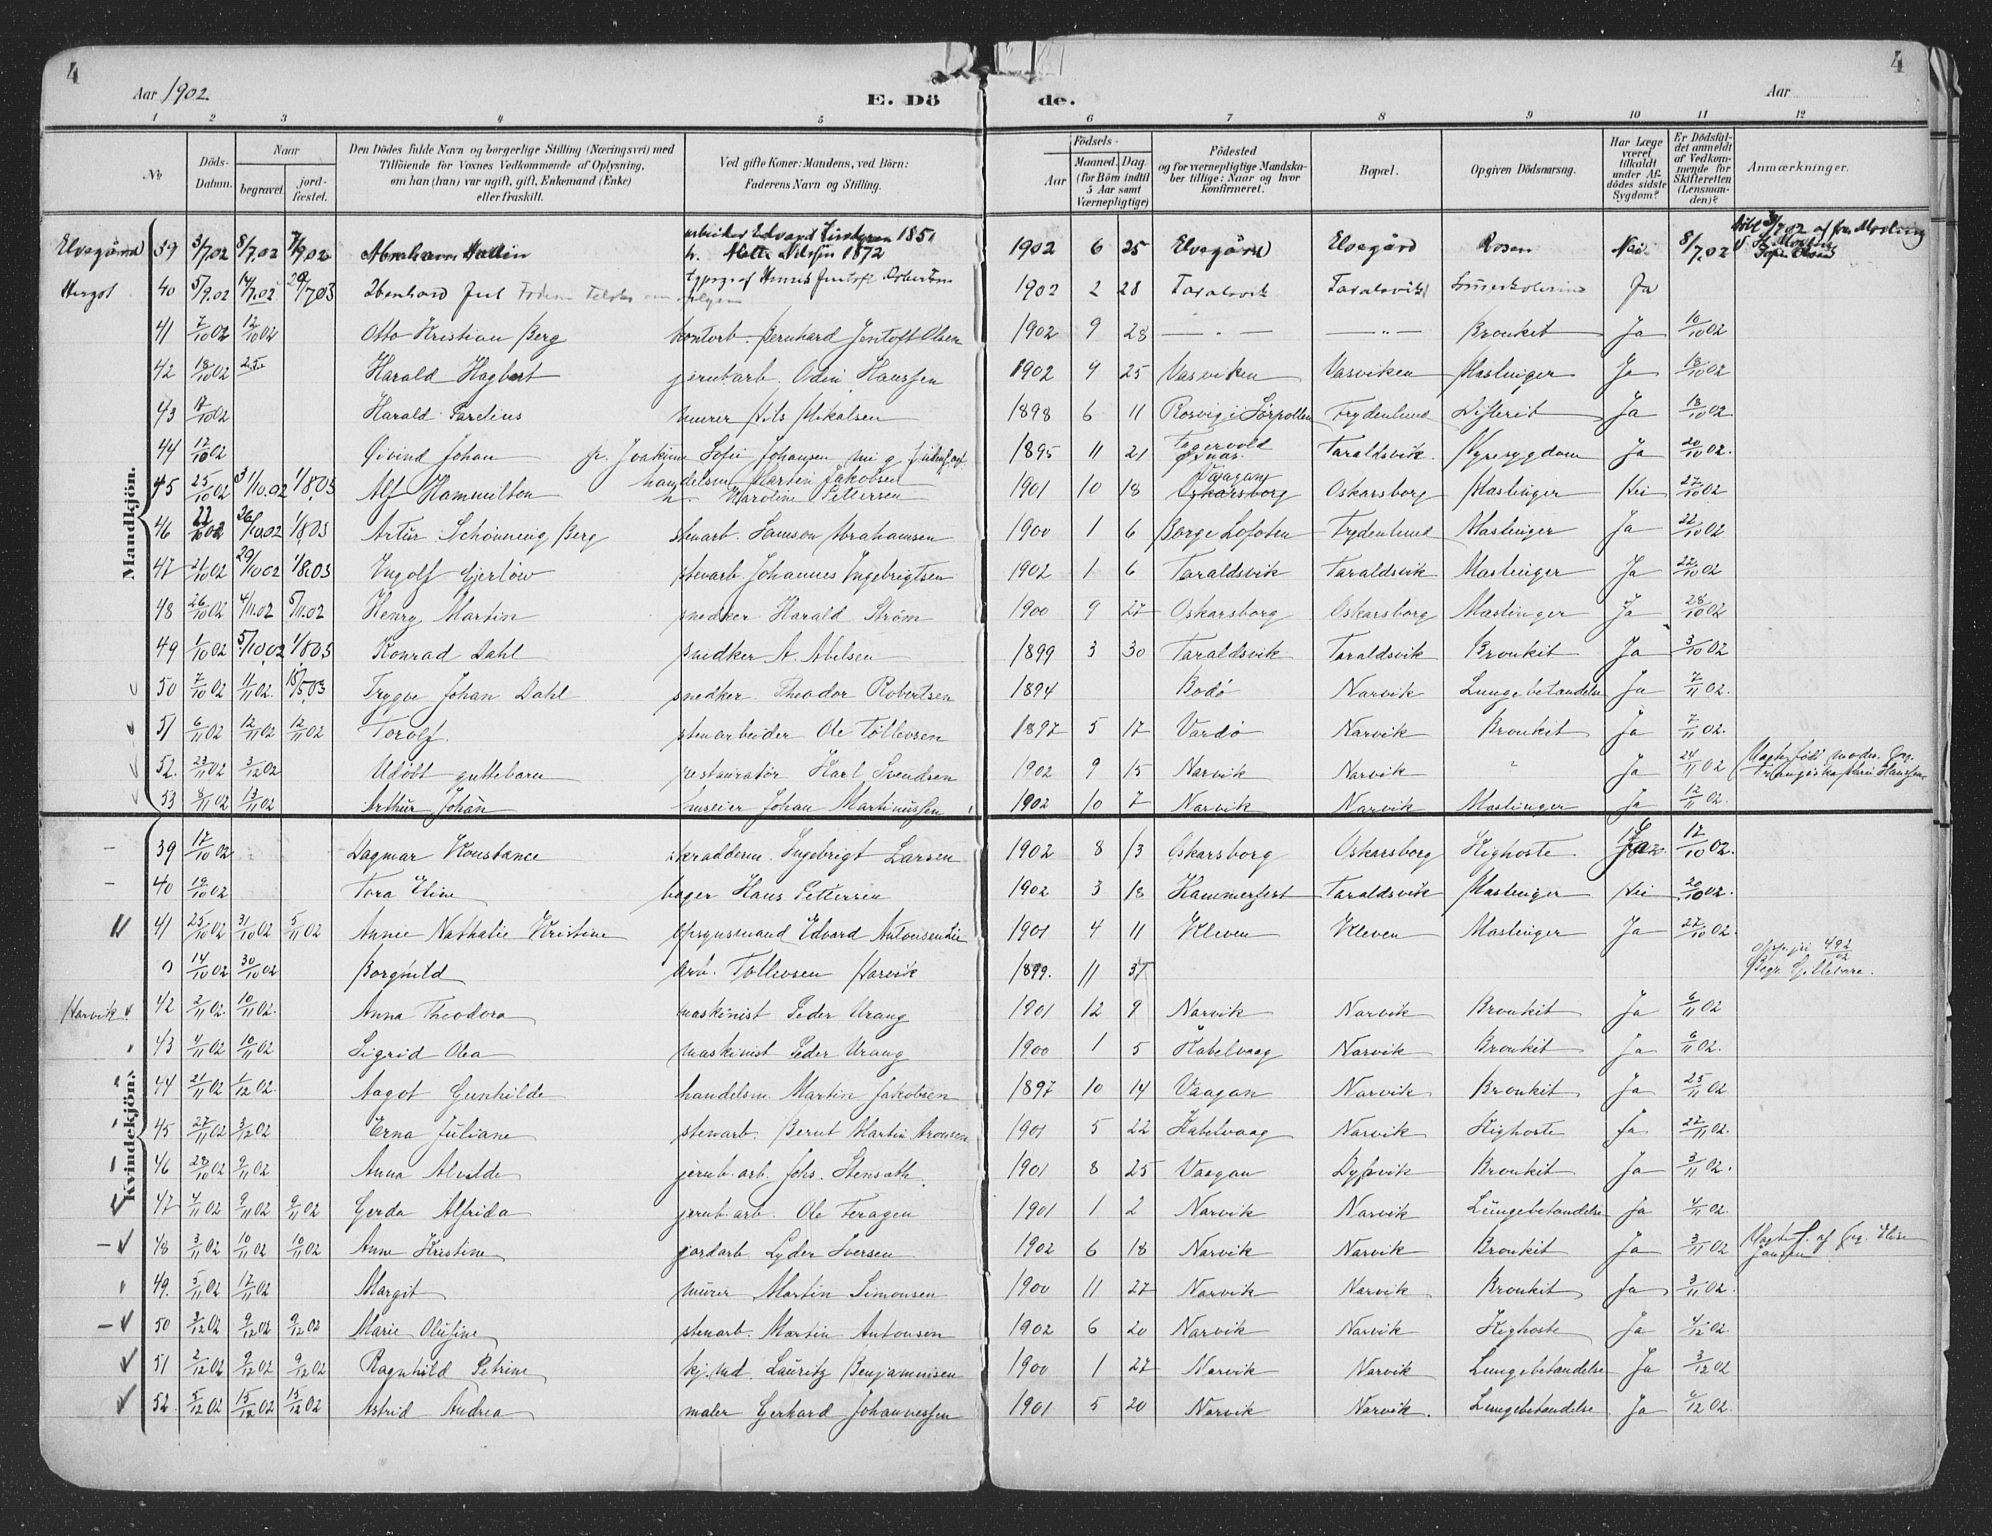 4
4
Aar 1902
E. Dö
de.
Aar
1 2 3 4 5 6 7 8 9 10 11 12
No
Döds-Datum.
Naar
begravet. jordfæstet.
Den Dödes fulde Navn og borgerlige Stilling (Næringsvei) med Tilföiende for Voxnes Vedkommende af Oplysning, om han (hun) var ugift, gift, Enkemand (Enke) eller fraskilt.
Ved gifte Koner: Mandens, ved Börn: Faderens Navn og Stilling.
Födsels-
Aar
Maaned. Dag. (for Börn indtil 5 Aar samt Værnepligtige)
Födested og for værnepligtige Mandskaber tillige: Naar og hvor konfirmeret.
Bopæl.
Opgiven Dödsaarsag.
Har Læge været tilkaldt under Afdödes sidste Sygdom?
Er Dödsfaldet anmeldt af Vedkommende for Skifteretten (Lensmanden)?
Anmærkninger.
Mandkjön.
Elvegård 39 3/7.02 8/7.02 7/9.02 Abraham arbeider Edvard 1851 h. Mette Nilsen 1872 1902 6 25 Elvegård Elvegård Rosen Nei 8/7.02
40 5/9.02 14/7.02 20/7.03 Ibenhard Juel typograf 1902 2 28 Taralsvik Taralsvik Ja
41 7/10 02 12/10 02 Otto Kristian Berg kontorb. Bernhard Jentoft Olsen 1902 9 28 — " — — " — Bronkit Ja 10/10 02
42 18/10 02 Harald Hagbart jernb.arb. Odin Hanssen 1902 9 25 Vasviken Vasviken Mæslinger Ja 18/10 02
43 17/10 02 Harald murer Nils Mikalsen 1898 6 11 Rosvig i Sørpollen Frydenlund Difterit Ja 18/10 02
44 17/10 02 Øivind Johan Joakime Sofie Johansen 1895 11 21 Taraldsvik Nyresygdom Ja 20/10 02
45 25/10 02 31/10.02 1/8.03 Alf Hammilton handelsm. Martin Jakobsen h. Karoline Pettersen 1901 10 18 Vaagan Oskarsborg Oskarsborg Mæslinger Nei 27/10 02
46 22/10 02 26/10.02 1/8.03 Artur Schønning Berg stenarb. Samson Abrahamsen 1900 1 6 Borge Lofoten Frydenlund Mæslinger Ja 22/10 02
47 21/10 02 29/10 02 1/8.03 Ingolf Gjerløw stenarb. Johannes Ingebrigtsen 1902 1 6 Taraldsvik Taraldsvik Mæslinger Ja 22/10 02
48 26/10 02 4/11.02 5/11.02 Henry Martin snedker Harald Strøm 1900 9 27 Oskarsborg Oskarsborg Mæslinger Ja 28/10 02
49 1/10 02 5/10.02 1/8.03 Konrad Dahl snedker A. Abelsen 1899 3 30 Taraldsvik Taraldsvik Bronkit Ja 3/10 02
50 7/10 02 11/11 02. 15/5.03 Trygve Johan Dahl snedker Theodor Robertsen 1894 Bodø Narvik Lungebetændelse Ja 7/11 02.
51 6/11 02 12/11 02 12/11 02 Torolf. stenarbeider Ole Tollevsen 1897 5 17 Vardø Narvik Bronkit Ja 7/11 02.
52. 23/11 02 3/12 02 Udøbt guttebarn restauratør Karl Svendsen 1902 9 15 Narvik Narvik " Ja 24/11 02
53 8/11 02 13/11 02 Arthur Johan Johan Martinussen 1902 10 7 Narvik Narvik Mæslinger Ja 12/11 02.
Kvindekjön.
39 17/10 02 Dagmar Konstance skrædderm. Ingebrigt Larsen 1902 8 13 Oskarsborg Oskarsborg Kighoste Ja 17/10 02.
40 19/10 02 Tora Eline bager Hans Pettersen 1902 3 18 Hammerfest Taraldsvik Mæslinger Nei 20/10 02.
41 25/10 02 31/10 02 5/11 02 Anne Nathalie Kristine opsynsmand Edvard Antonsen 1901 4 11 Kleven Kleven Mæslinger Ja 27/10 02.
0 14/10 02 30/10 02 Borghild arb. Tollevsen Narvik 1899. 11 31 Begr. Gellivare.
Narvik 42 2/11 02. 10/11 02. Anna Theodora maskinist Peder Urang 1901 12 9 Narvik Narvik Bronkit Ja 6/11 02
43 4/11 02 10/11 02 Sigrid Olea maskinist Peder Urang 1900 1 5 Kabelvaag Narvik Bronkit Ja 6/11 02.
44 21/11 02 1/12 02. Aagot Gunhilde handelsm. Martin Jakobsen 1897 10 14 Vaagan Narvik Bronkit Ja 25/11 02
45 27/11 02 3/12 02 Erna Juliane stenarb. Bernt Martin Aronsen 1901 5 22 Kabelvaag Narvik Kighoste Ja 27/11 02.
46 28/10 02 9/11 02. Anna Alvilde jernb.arb. Johs. Stensøth. 1901 8 25 Vaagan Dypvik Bronkit Ja 3/11 02.
47 4/11 02 9/11 02 9/11 02 Gerda Alfrida jernb.arb. Ole Feragen 1901 1 2 Narvik Narvik Lungebetændelse Ja 4/11 02
48 3/11 02 10/11 02 10/11 02 Anne Kristine jordarb. Lyder Iversen 1902 6 18 Narvik Narvik Bronkit Ja 3/11 02
49. 5/11 02 17/11 02 Margit murer Martin Simonsen 1900 11 27 Narvik Narvik Bronkit Ja 3/11 02.
50 3/12 02 9/12 02 9/12 02 Marie Olufine stenarb. Martin Antonsen 1902 6 20 Narvik Narvik Kighoste Ja 4/12 02.
51 2/12 02 9/12 02 9/12 02 Ragnhild Petrine Lauritz Benjaminsen 1900 1 27 Narvik Narvik Lungebetændelse Ja 3/12 02
52. 5/12 02 15/12 02 15/12 02 Astrid Andrea maler Gerhard Johannessen 1901 5 20 Narvik Narvik. Lungebetændelse Ja 4/12 02.